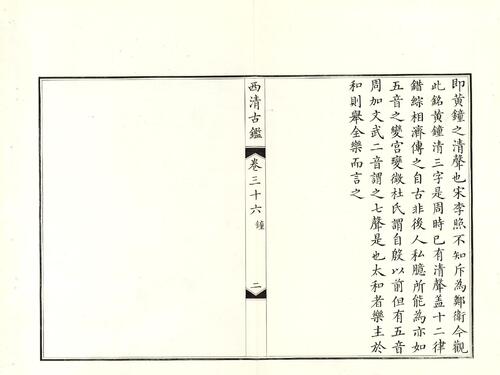 即黃鐘之清聲也宋李照不知斥為鄭衛今觀
此銘黃鐘清三字是周時已有清聲蓋十二律
錯綜相濟傳之自古非後人私臆所能為亦如
五音之變宮變徵杜氏謂自殷以前但有五音
周加文武二音謂之七聲是也太和者樂主於
和則舉全樂而言之
西清古鑑
卷三十六 鐘
二